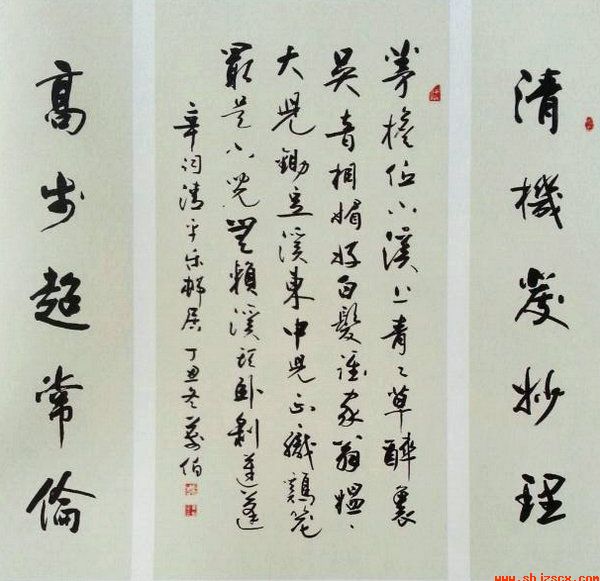 清機發妙理
茅檐低小溪上青々草醉裏
吳音相媚好白髮誰家翁媼、
大兒鋤豆溪東中兒正織鷄籠
最是小兒無賴溪頭臥剝蓮蓬
辛詞清平乐邨居 丁丑冬
高步超常倫
www.shjzscx.com